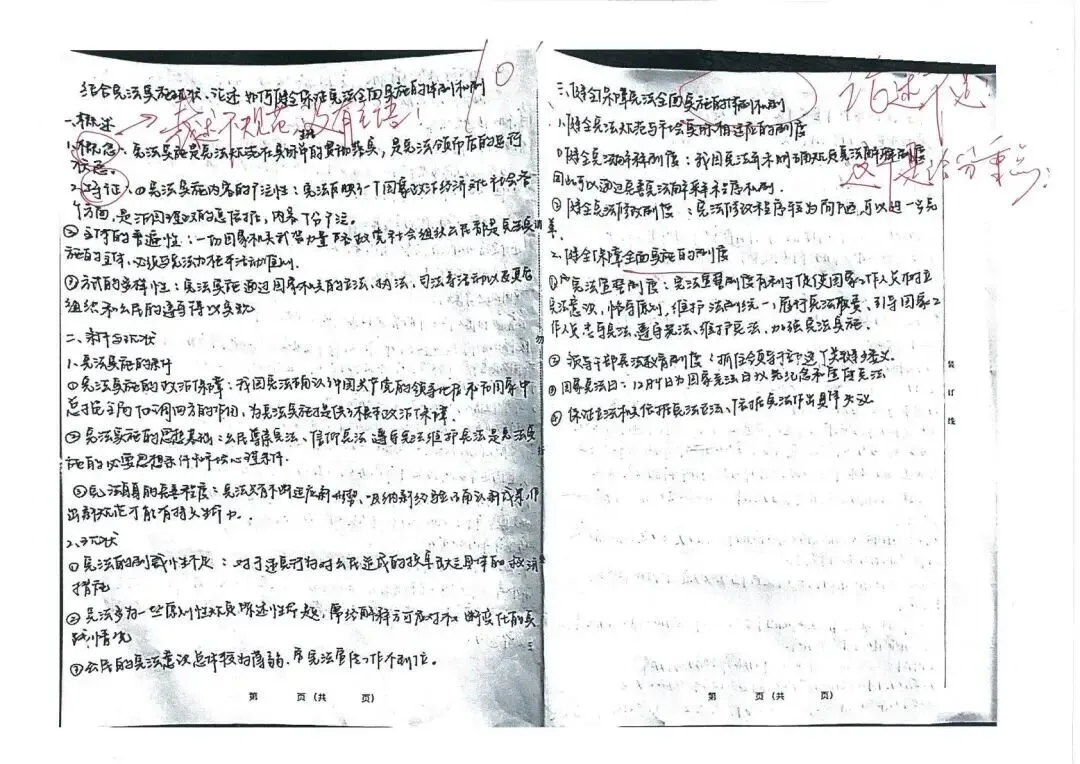 结合宪法实施现状,论述如何健全保证宪法全面实施的体制机制
10
一、概述
表述不规范 没有主语!
1.概念:宪法实施是宪法规范在实际中的贯彻落实,是宪法颁布后的运行
状态。
2.特征:①宪法实施内容的广泛性:宪法反映一个国家政治经济文化社会各
个方面,是治国理政的总依据,内容十分广泛。
②主体的普遍性:一切国家机关武装力量 政党社会组织公民都是宪法实
施的主体,必须以宪法为根本活动准则。
③方式的多样性:宪法实施通过国家机关的立法、执法、司法等活动以及其它
组织和公民的遵守得以实现
二、条件与现状
1.宪法实施的条件
①宪法实施的政治保障:我国宪法确认了中国共产党的领导地位和在国家中
总揽全局协调四方的作用,为宪法实施提供了根本政治保障。
②宪法实施的思想基础:公民尊崇宪法、信仰宪法遵守宪法维护宪法是宪法实
施的必要思想条件和社会心理条件.
③宪法自身的完善程度:宪法只有不断适应新形势、吸纳新经验确认新成果作
出新规范才能有持久生命力.
2.现状
①宪法的制裁性不足:对于违宪行为对公民造成的损害缺乏具体的救济
措施
②宪法多为一些原则性规定
践情况
③公民的宪法意识总体较为薄弱,宪法宣传工作不到位。
第 页(共 页)
三、健全保障宪法全面实施的体制机制
论述不透
1.健全宪法规范与社会实际相适应的制度
①健全宪法解释制度:我国宪法并未明确规定宪法解释制度
因此可以通过完善宪法解释程序机制.
这个是给分重点!
②健全宪法修改制度:宪法修改程序较为简陋,可以进一步完
善.
2.健全保障全面实施的制度
①宪法宣誓制度:宪法宣誓制度有利于促使国家工作人员树立
宪法意识,恪守原则,维护法制统一,履行宪法职责、引导国家工
作人员忠于宪法、遵守宪法、维护宪法,加强宪法实施.
②领导干部宪法教育制度:抓住领导干部这个关键少数.
③国家宪法日:12月4日为国家宪法日以纪念和宣传宪法
④保证立法机关依据宪法立法、依据宪法作出具体决议
第 页(共 页)
装
订
线